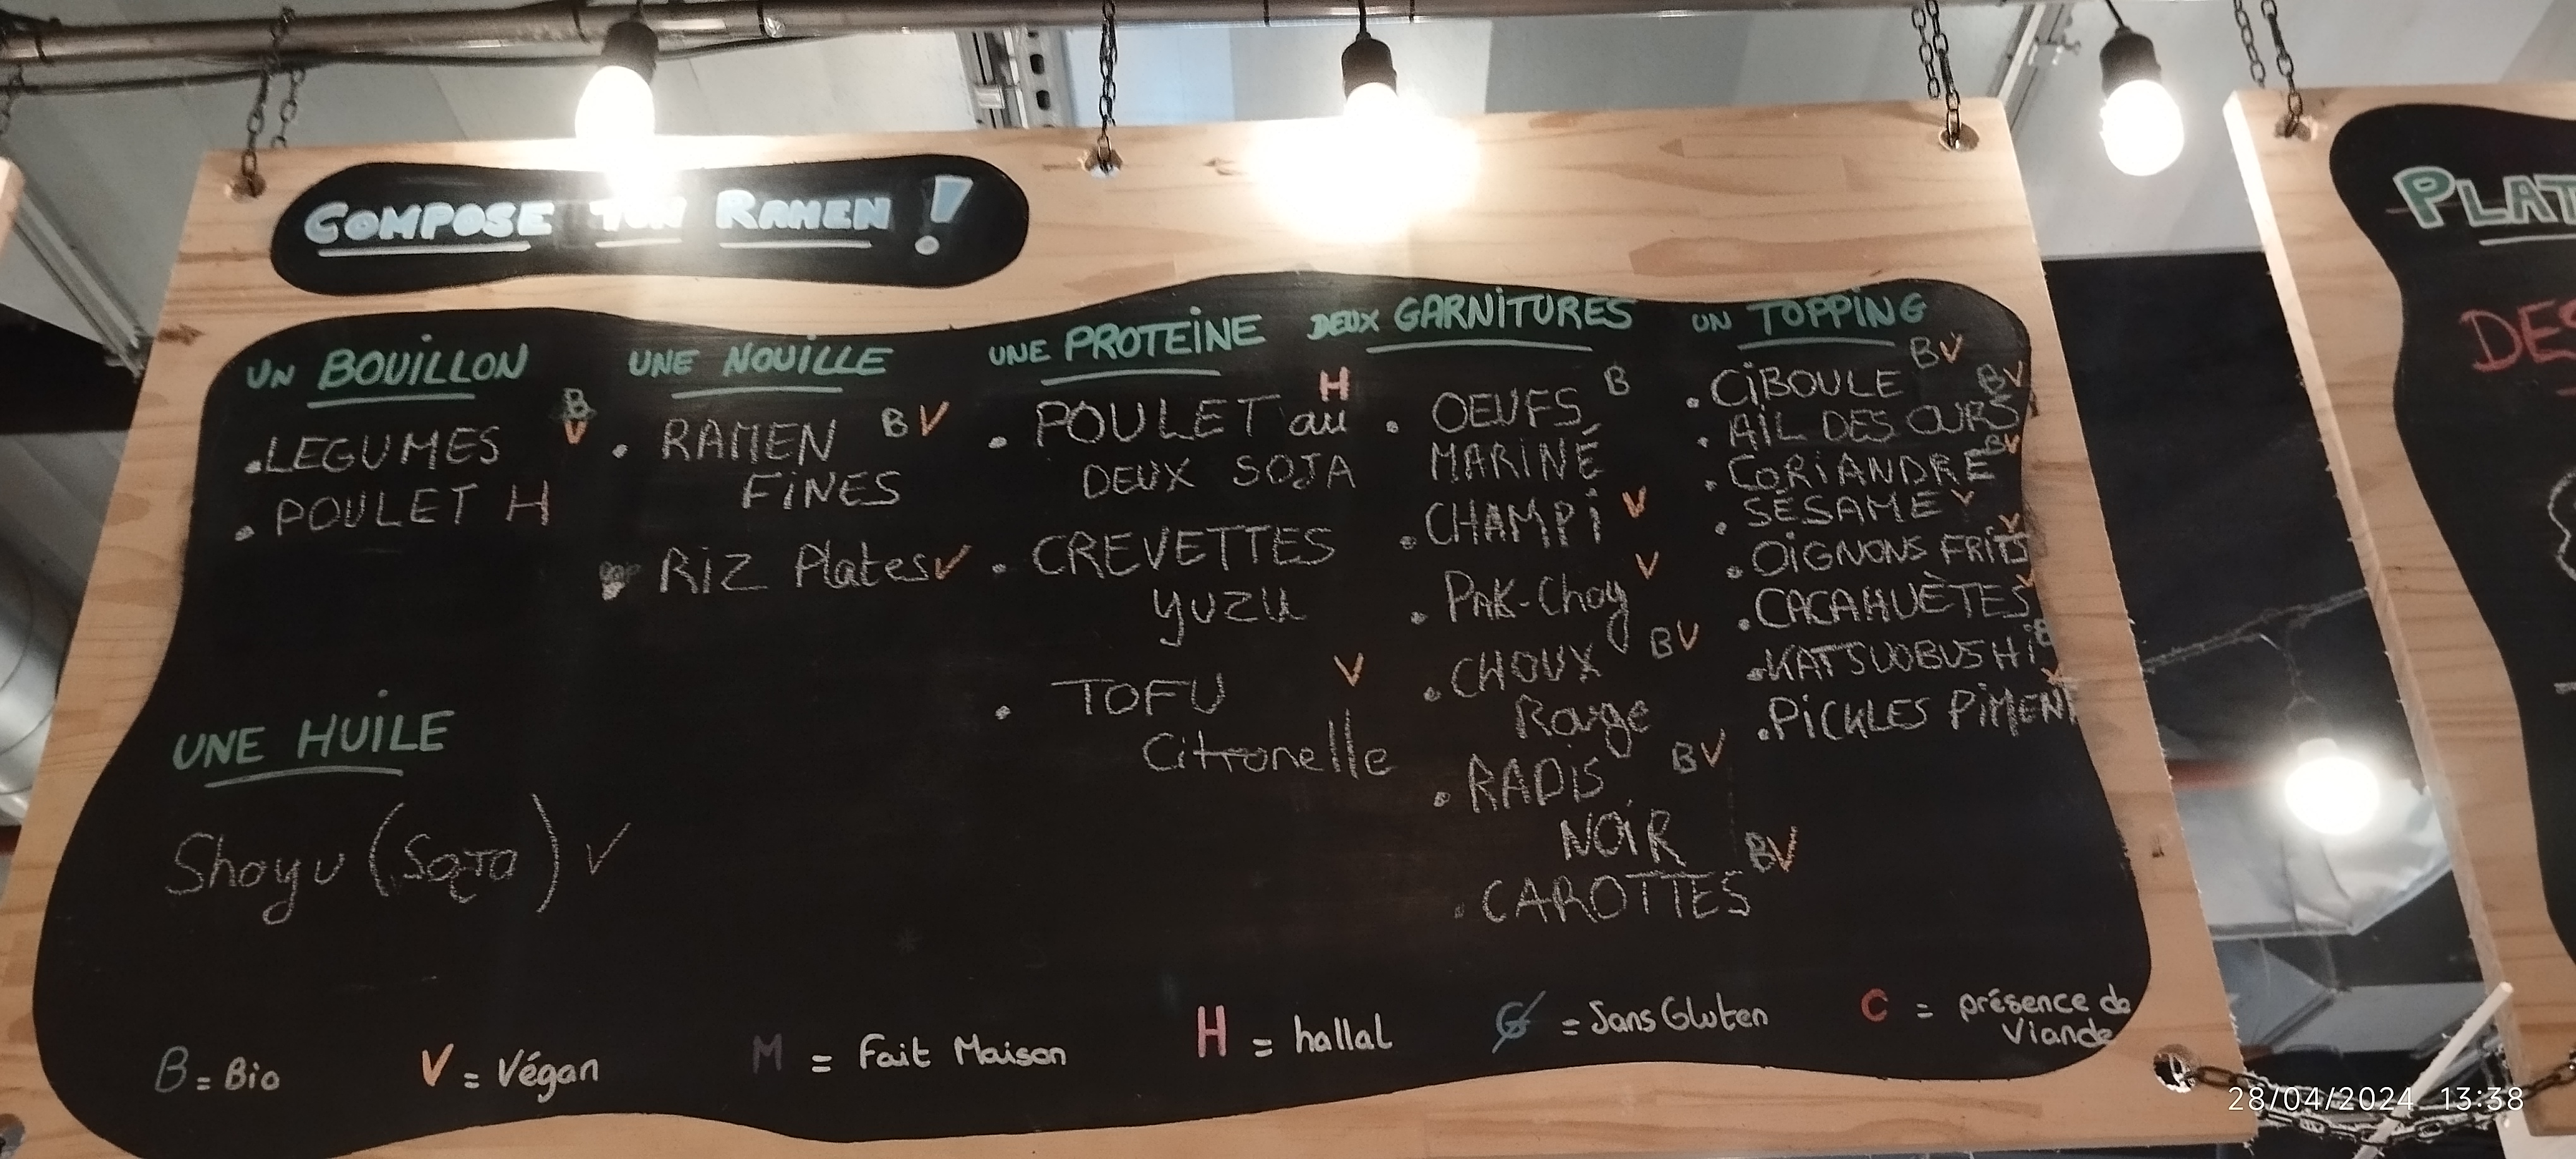 COMPOSE TON RAMEN !
UN BOUILLON
B
V
. LEGUMES
. POULET H
UNE HUILE
Shoyu (Soja) V
UNE NOUILLE
. RAMEN BV
FINES
RIZ Plates V
UNE PROTEINE
H
. POULET au
DEUX SOJA
. CREVETTES
YUZU
. TOFU V
Citronelle
DEUX GARNITURES
. OEUFS B
MARINÉ
. CHAMPI V
. PAK-Choy V
. CHOUX BV
Rouge
. RADIS BV
NOIR
. CAROTTES BV
UN TOPPING
. CIBOULE BV
. AIL DES OURS BV
. CORIANDRE BV
. SÉSAME V
. OIGNONS FRITS V
. CACAHUÈTES V
. KATSUOBUSHI B
. PICKLES PIMENT V
B = Bio
V = Végan
M = Fait Maison
H = hallal
G = Sans Gluten
C = présence de
Viande
PLAT
DES
28/04/2024 13:38